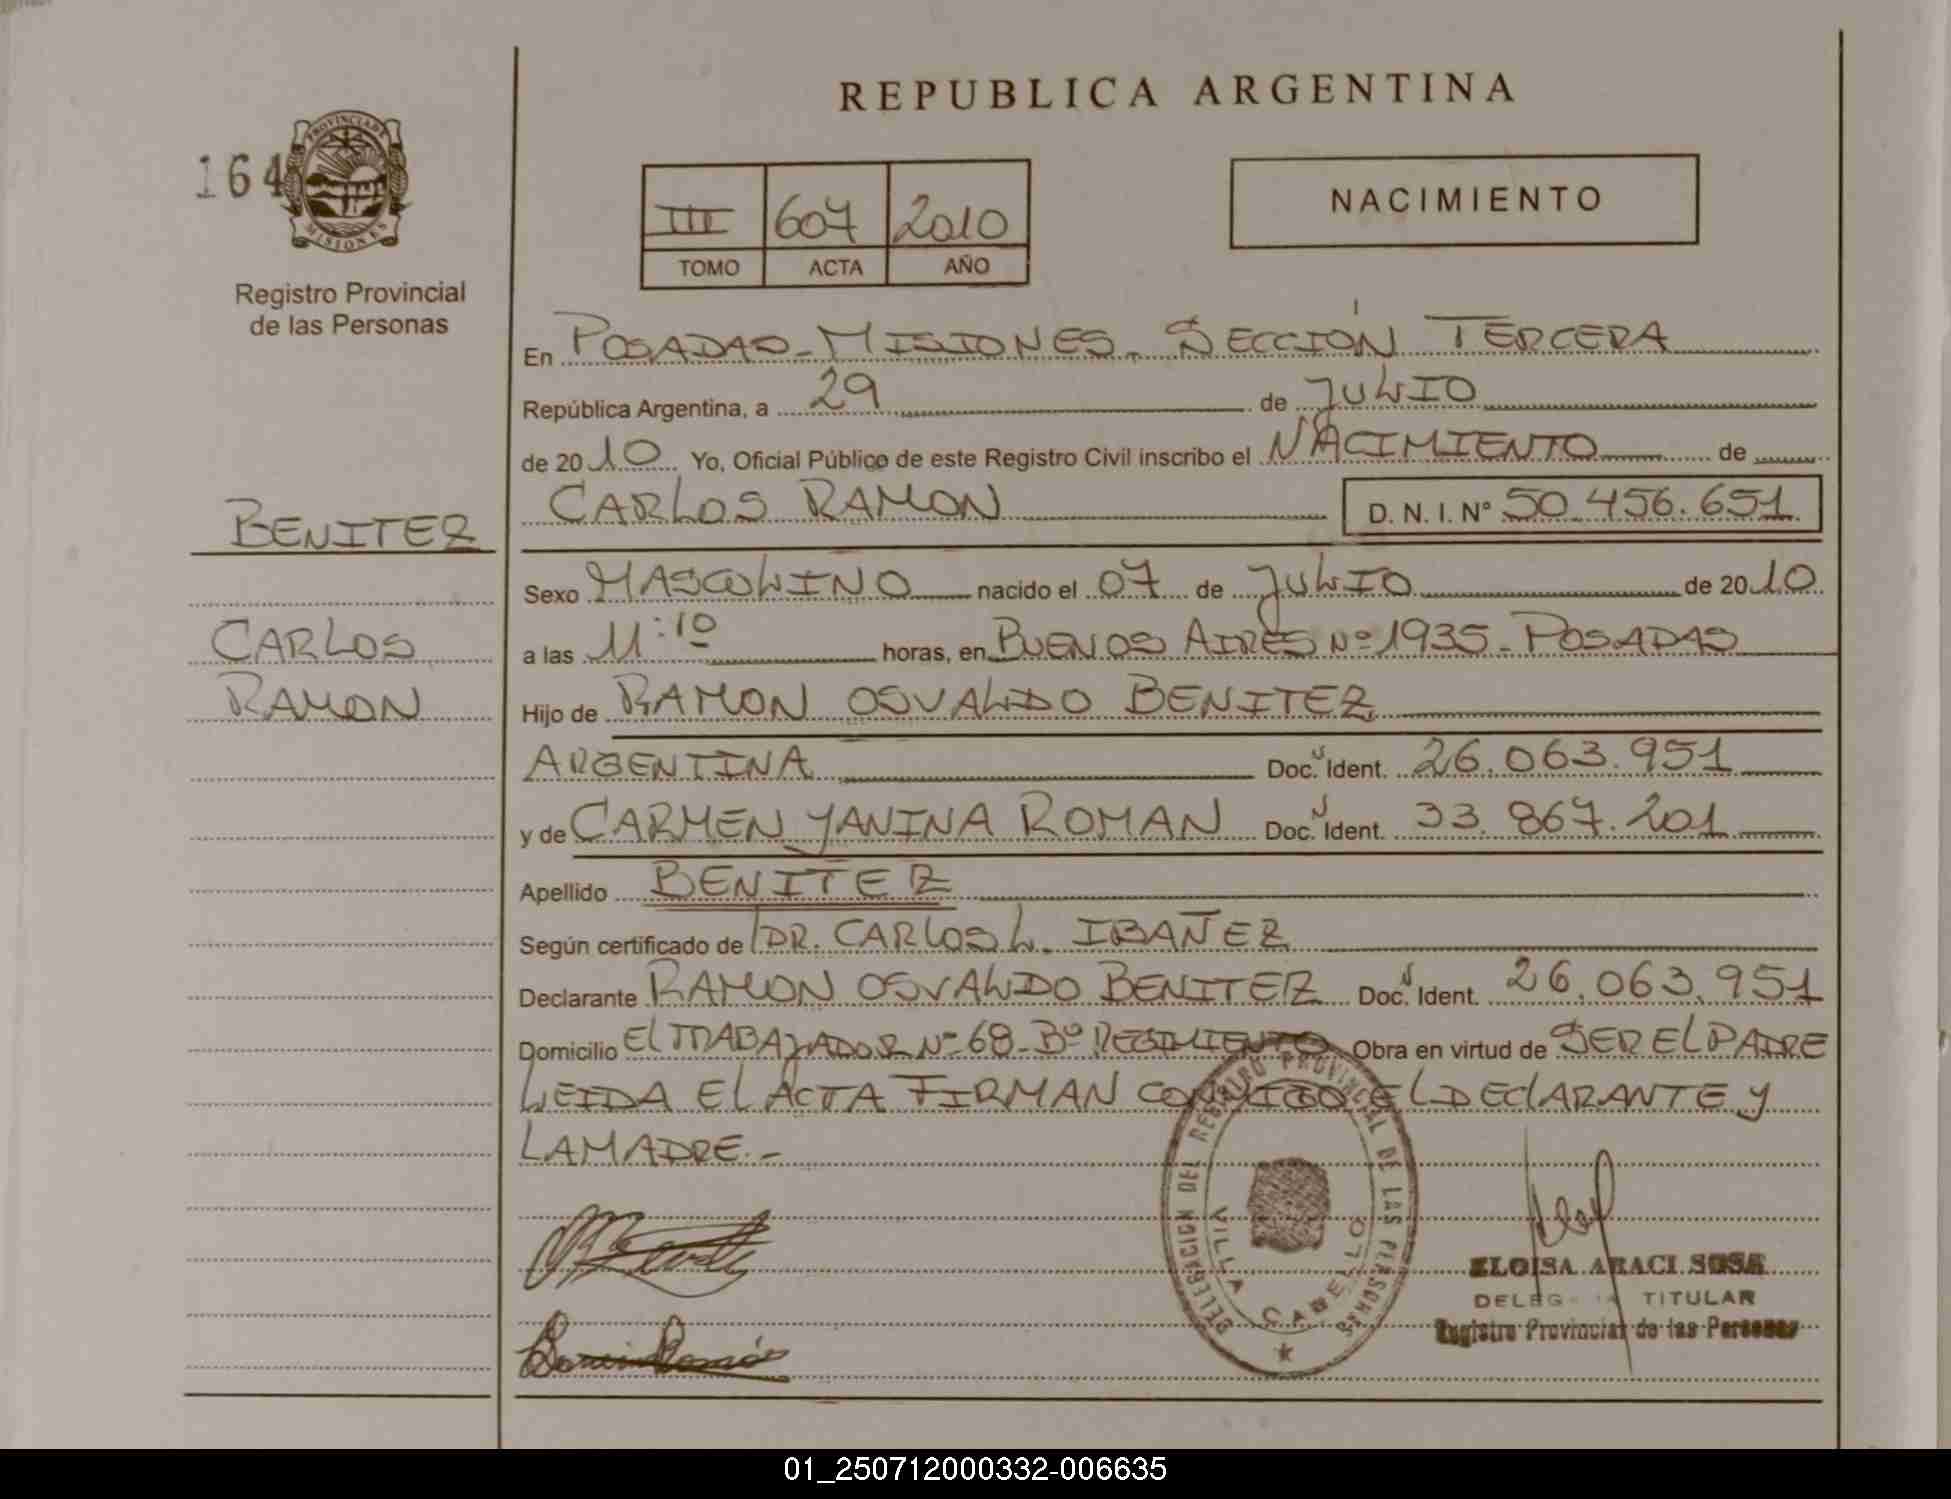 REPUBLICA ARGENTINA
164
PROVINCIA DE MISIONES
Registro Provincial
de las Personas
III 607 2010
TOMO ACTA AÑO
NACIMIENTO
En POSADAS - MISIONES. SECCIÓN TERCERA
República Argentina, a 29 de JULIO
de 2010 Yo, Oficial Público de este Registro Civil inscribo el NACIMIENTO de
CARLOS RAMON D. N. I. Nº 50.456.651
BENITEZ
CARLOS
RAMON
Sexo MASCULINO nacido el 07 de JULIO de 2010
a las 11:10 horas, en BUENOS AIRES Nº 1935 - POSADAS
Hijo de RAMON OSVALDO BENITEZ
ARGENTINA Doc. Ident. 26.063.951
y de CARMEN YANINA ROMAN Doc. Ident. 33.867.201
Apellido BENITEZ
Según certificado de DR. CARLOS L. IBAÑEZ
Declarante RAMON OSVALDO BENITEZ Doc. Ident. 26.063.951
Domicilio El TRABAJADOR Nº 68 - Bº REGIMIENTO Obra en virtud de SER EL PADRE
LEIDA El ACTA FIRMAN CONMIGO EL DEClARANTE Y
LA MADRE.-
DELEGACION DEL REGISTRO PROVINCIAL DE LAS PERSONAS
VILLA CABELLO
ELOISA ARACI SOSA
DELEG TITULAR
Registro Provincial de las Personas
01_250712000332-006635